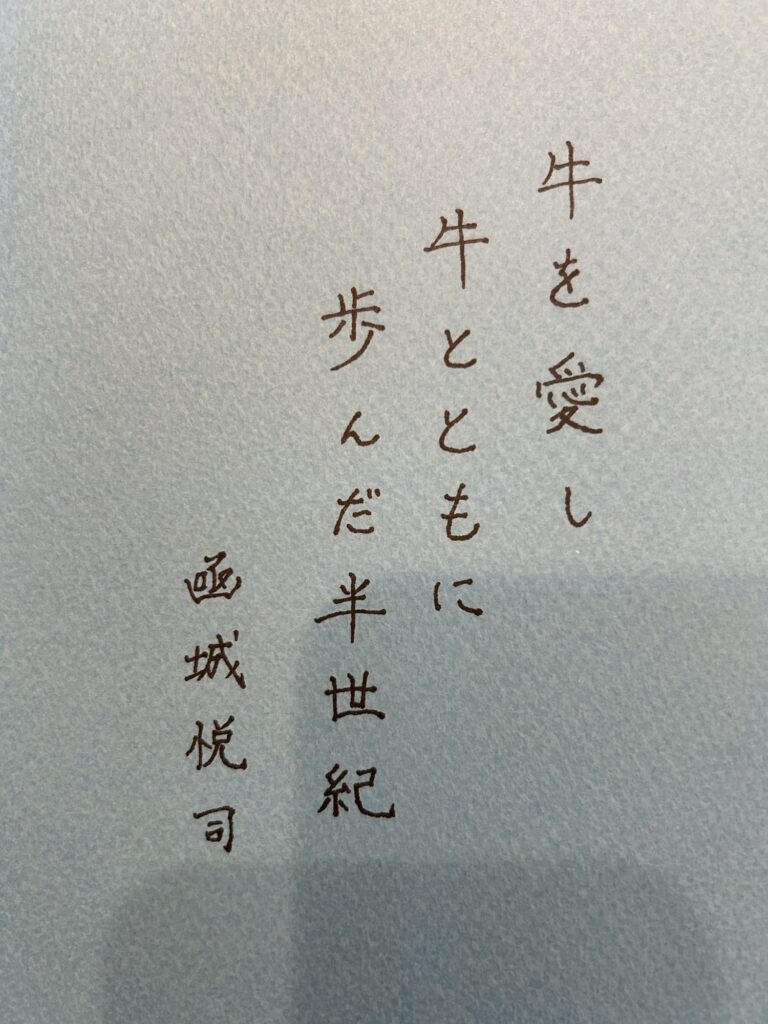 牛を愛し
牛とともに
歩んだ半世紀
凾城悦司